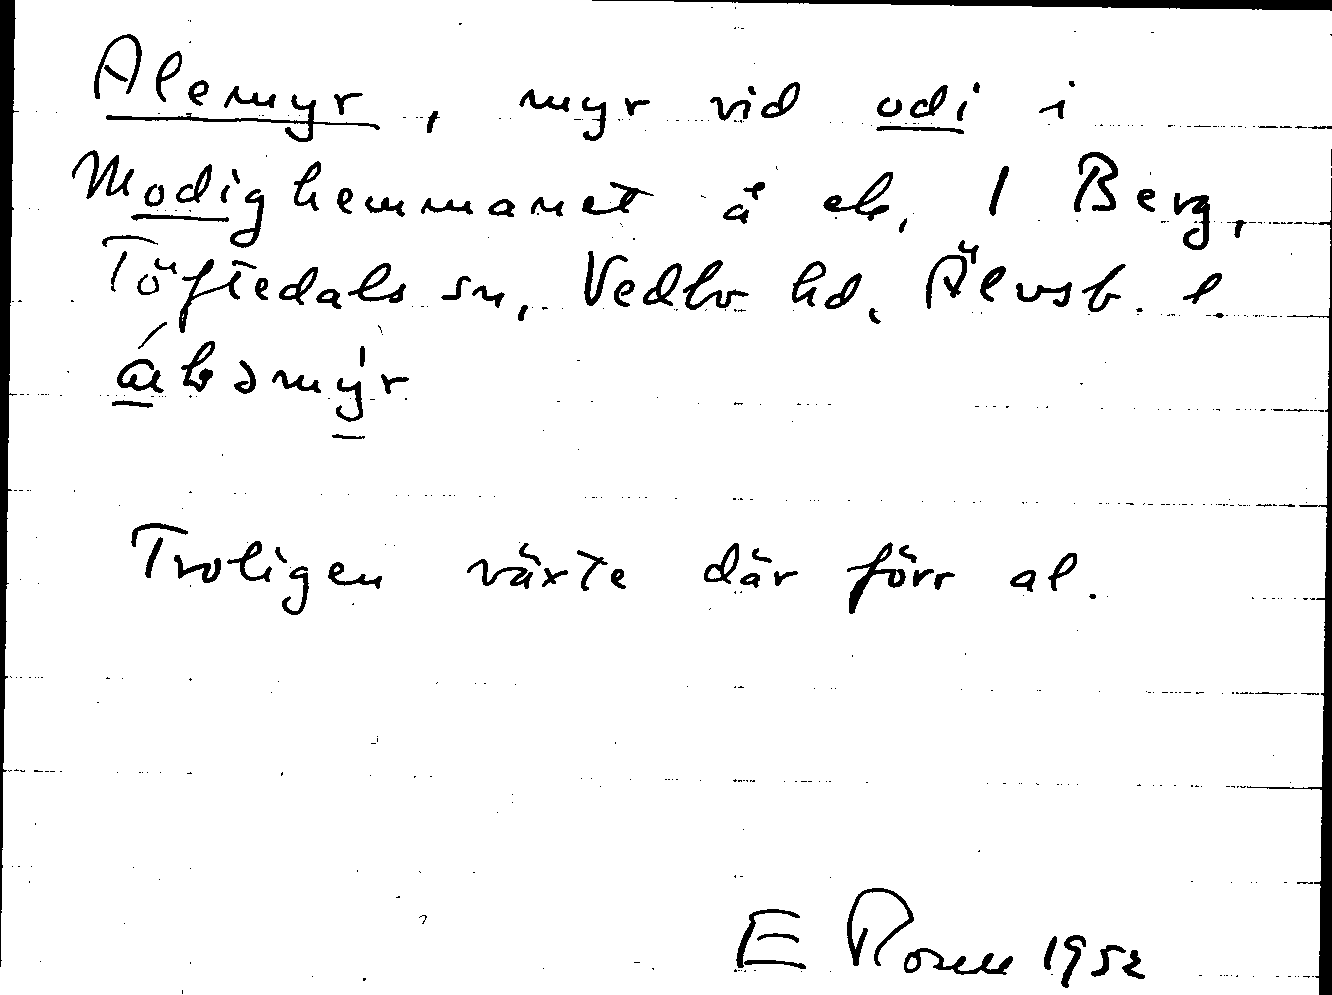 Alemyr, myr vid odi i
Modighemmanet å ek. 1 Berg,
Töftedals sn, Vedbo hd, Älvsb. l.
Troligen växte där förr al.
E 1952